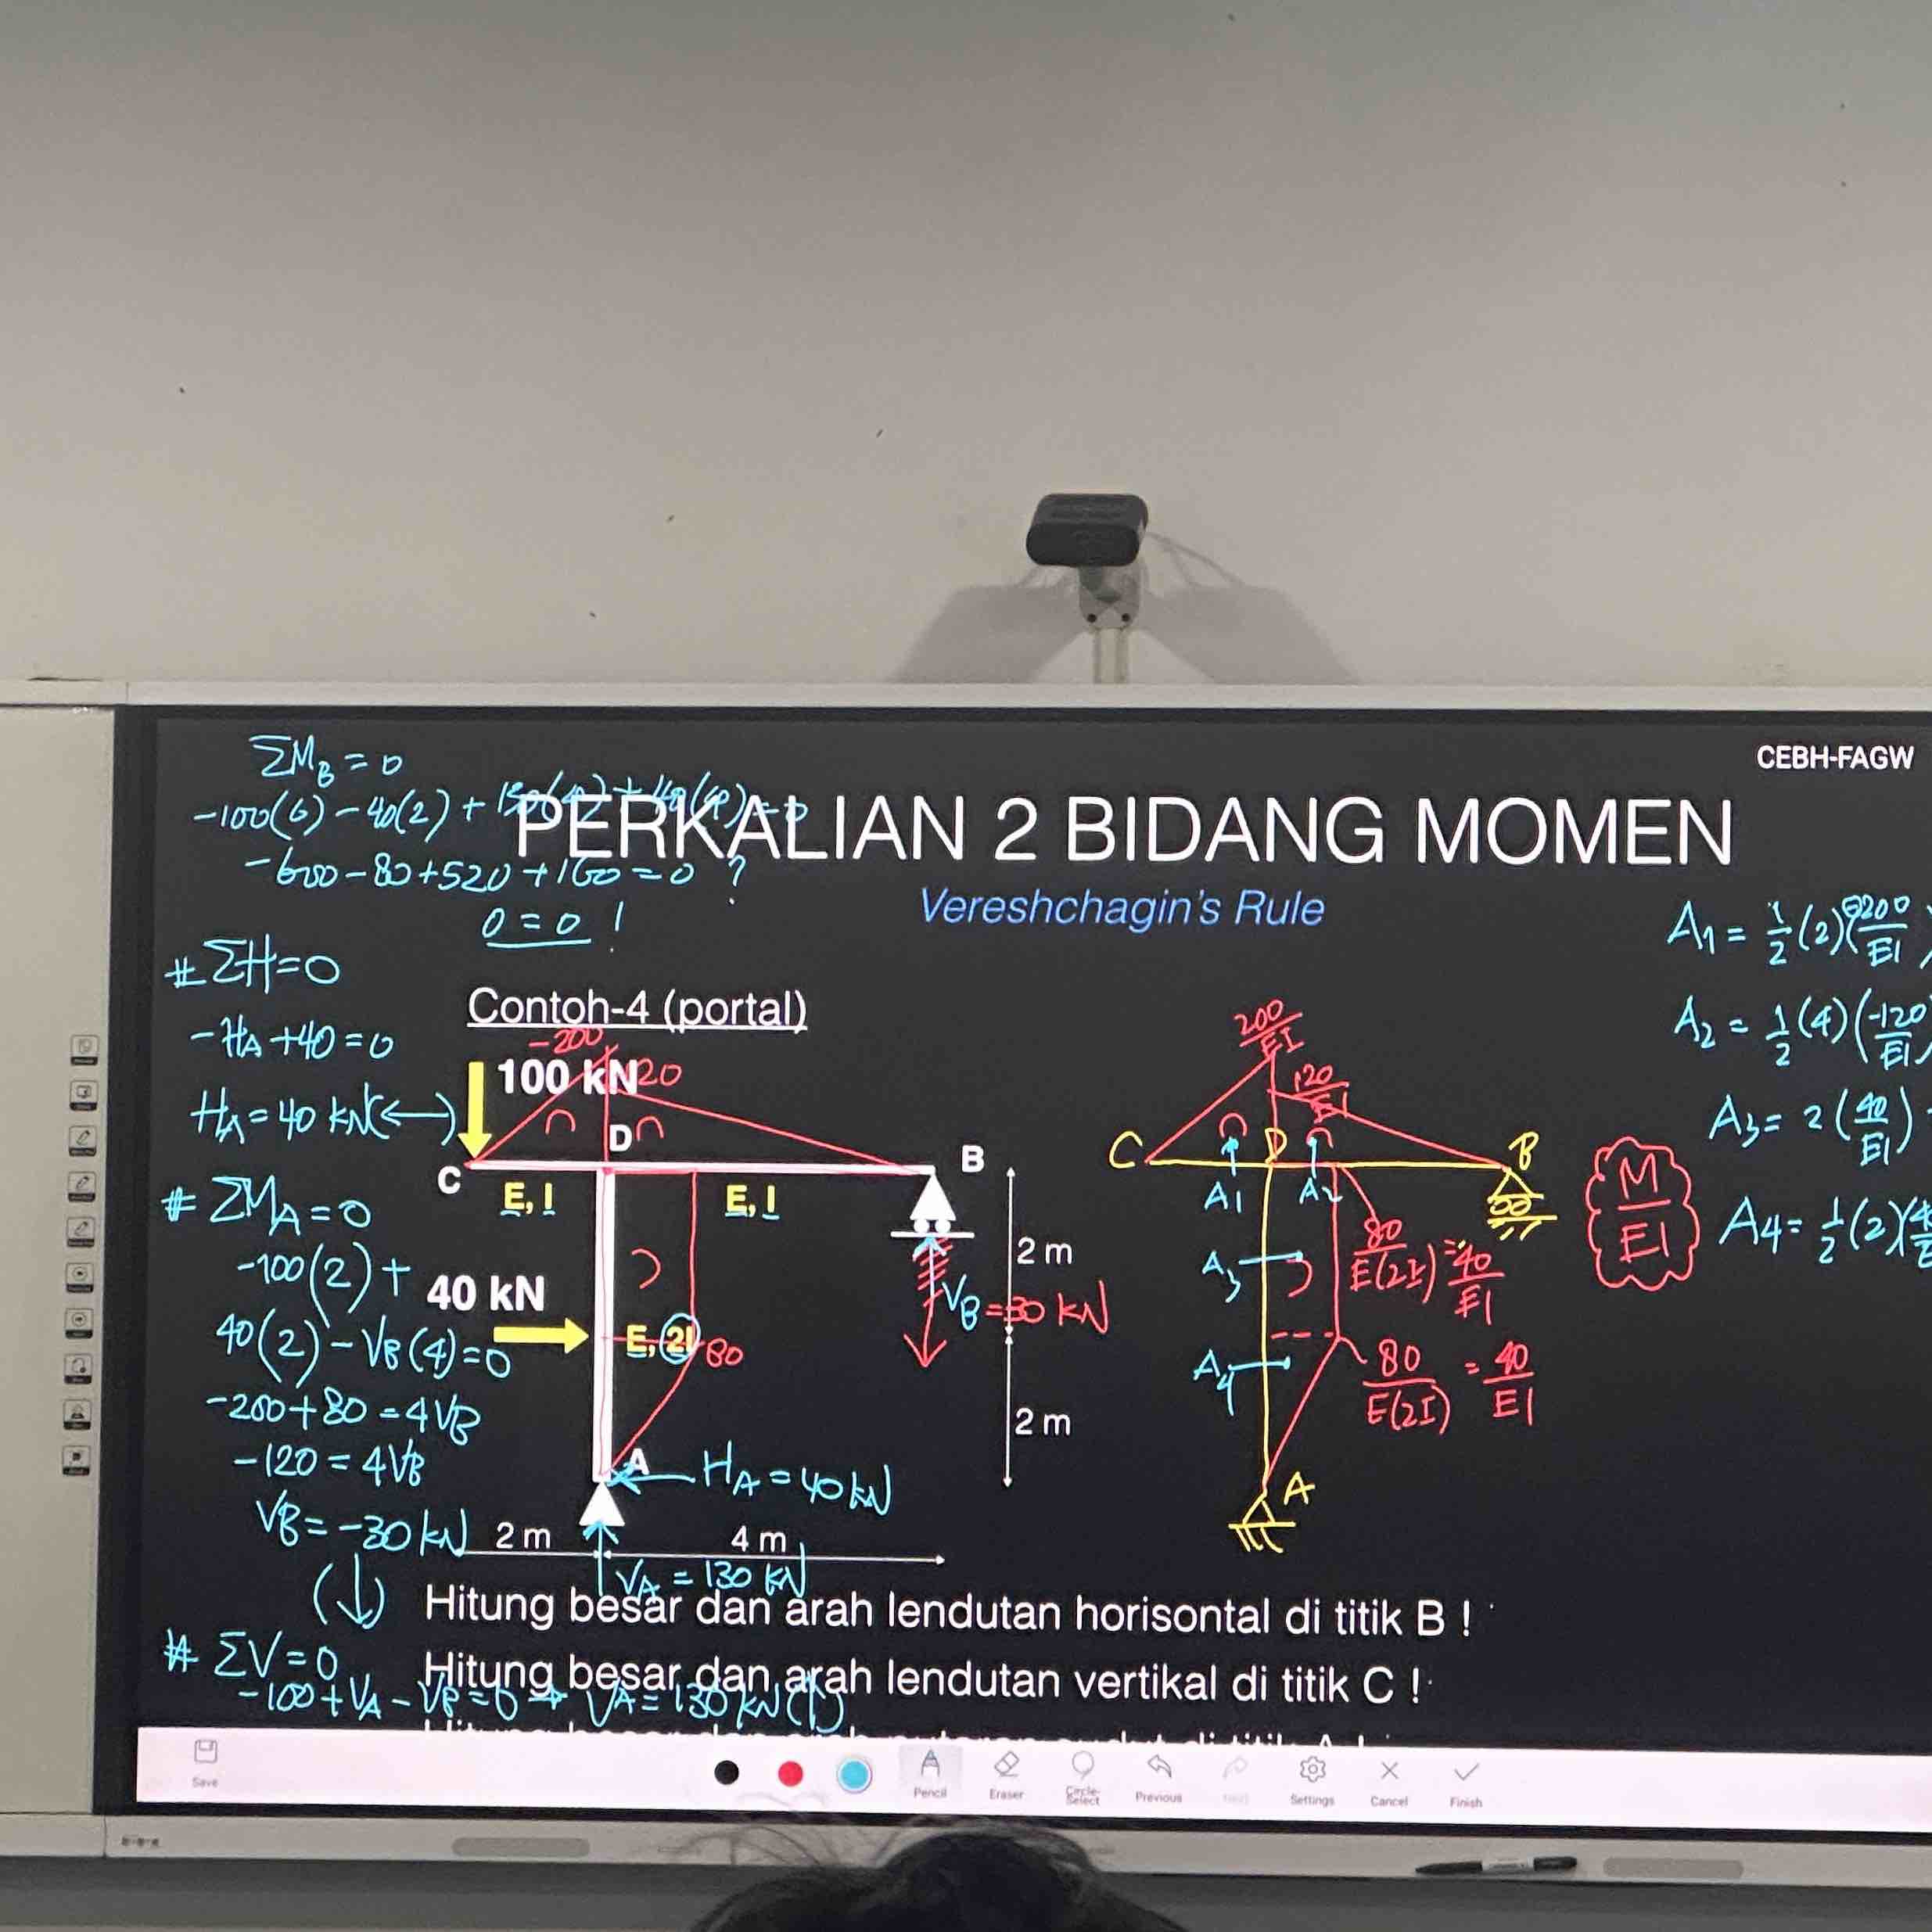 CEBH-FAGW
PERKALIAN 2 BIDANG MOMEN
Vereshchagin's Rule
ΣM_B = 0
-100(6) - 40(2) +
-600 - 80 + 520 + 160 = 0 ?
0 = 0 !
# ΣH = 0
-H_A + 40 = 0
H_A = 40 kN (←)
# ΣM_A = 0
-100(2) +
40(2) - V_B(4) = 0
-200 + 80 = 4V_B
-120 = 4V_B
V_B = -30 kN
(↓)
# ΣV = 0
-100 + V_A - V_B = 0 → V_A = 130 kN (↑)
Contoh-4 (portal)
-200
100 kN 20
D
C
B
E, I
E, I
40 kN
E, 2I
80
V_B = 30 kN
2 m
2 m
A
H_A = 40 kN
2 m
4 m
V_A = 130 kN
200/EI
120/EI
C
D
B
A1
A2
A3
80/E(2I) = 40/EI
A4
80/E(2I) = 40/EI
A
M/EI
A1 = 1/2 (2)(-200/EI)
A2 = 1/2 (4)(-120/EI)
A3 = 2 (40/EI)
A4 = 1/2 (2)(4
Hitung besar dan arah lendutan horisontal di titik B !
Hitung besar dan arah lendutan vertikal di titik C !
Save
Pencil
Eraser
Circle-Select
Previous
Next
Settings
Cancel
Finish